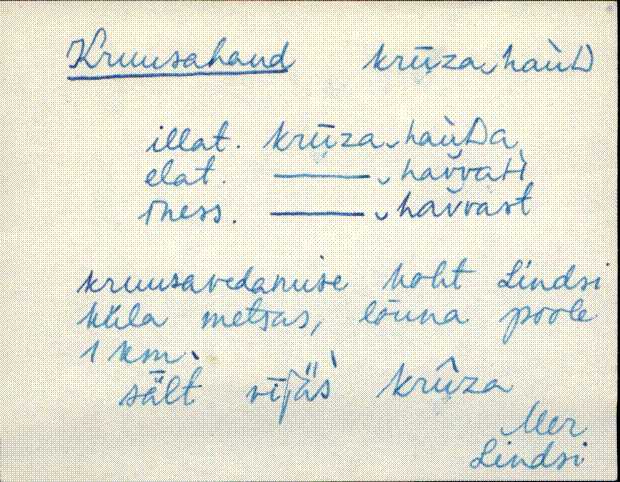 Kruusahaud krūza‿haùD
illat. krūza‿haùDa
elat. ——— ‿havvaᴅ
iness. ——— ‿havvast
kruusavedamise koht Lindsi
küla metsas, lõuna poole
1 km.
sält vījäs̀ krûza
Mer
Lindsi